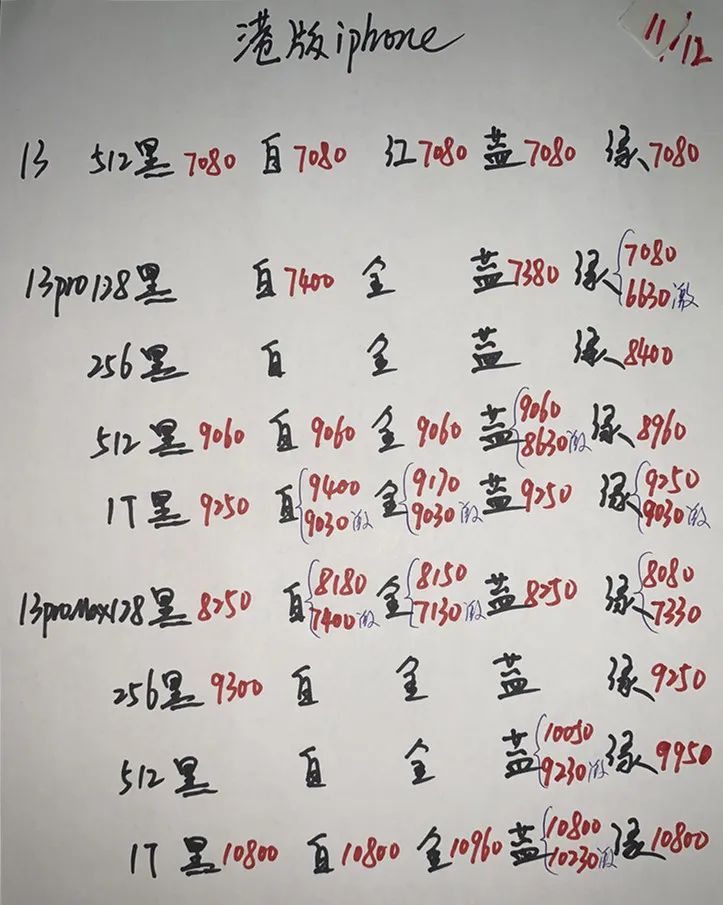 港版iphone 11/12
13 512黑7080 白7080 红7080 蓝7080 绿7080
13pro128黑 白7400 金 蓝7380 绿{7080
6630激
256黑 白 金 蓝 绿8400
512黑9060 白9060 金9060 蓝{9060 绿8960
8630激
1T黑9250 白{9400 金{9170 蓝9250 绿{9250
9030激 9030激 9030激
13promax128黑8250 白{8180 金{8150 蓝8250 绿{8080
7400激 7130激 7330
256黑9300 白 金 蓝 绿9250
512黑 白 金 蓝{10050 绿9950
9230激
1T黑10800 白10800 金10960 蓝{10800 绿10800
10230激